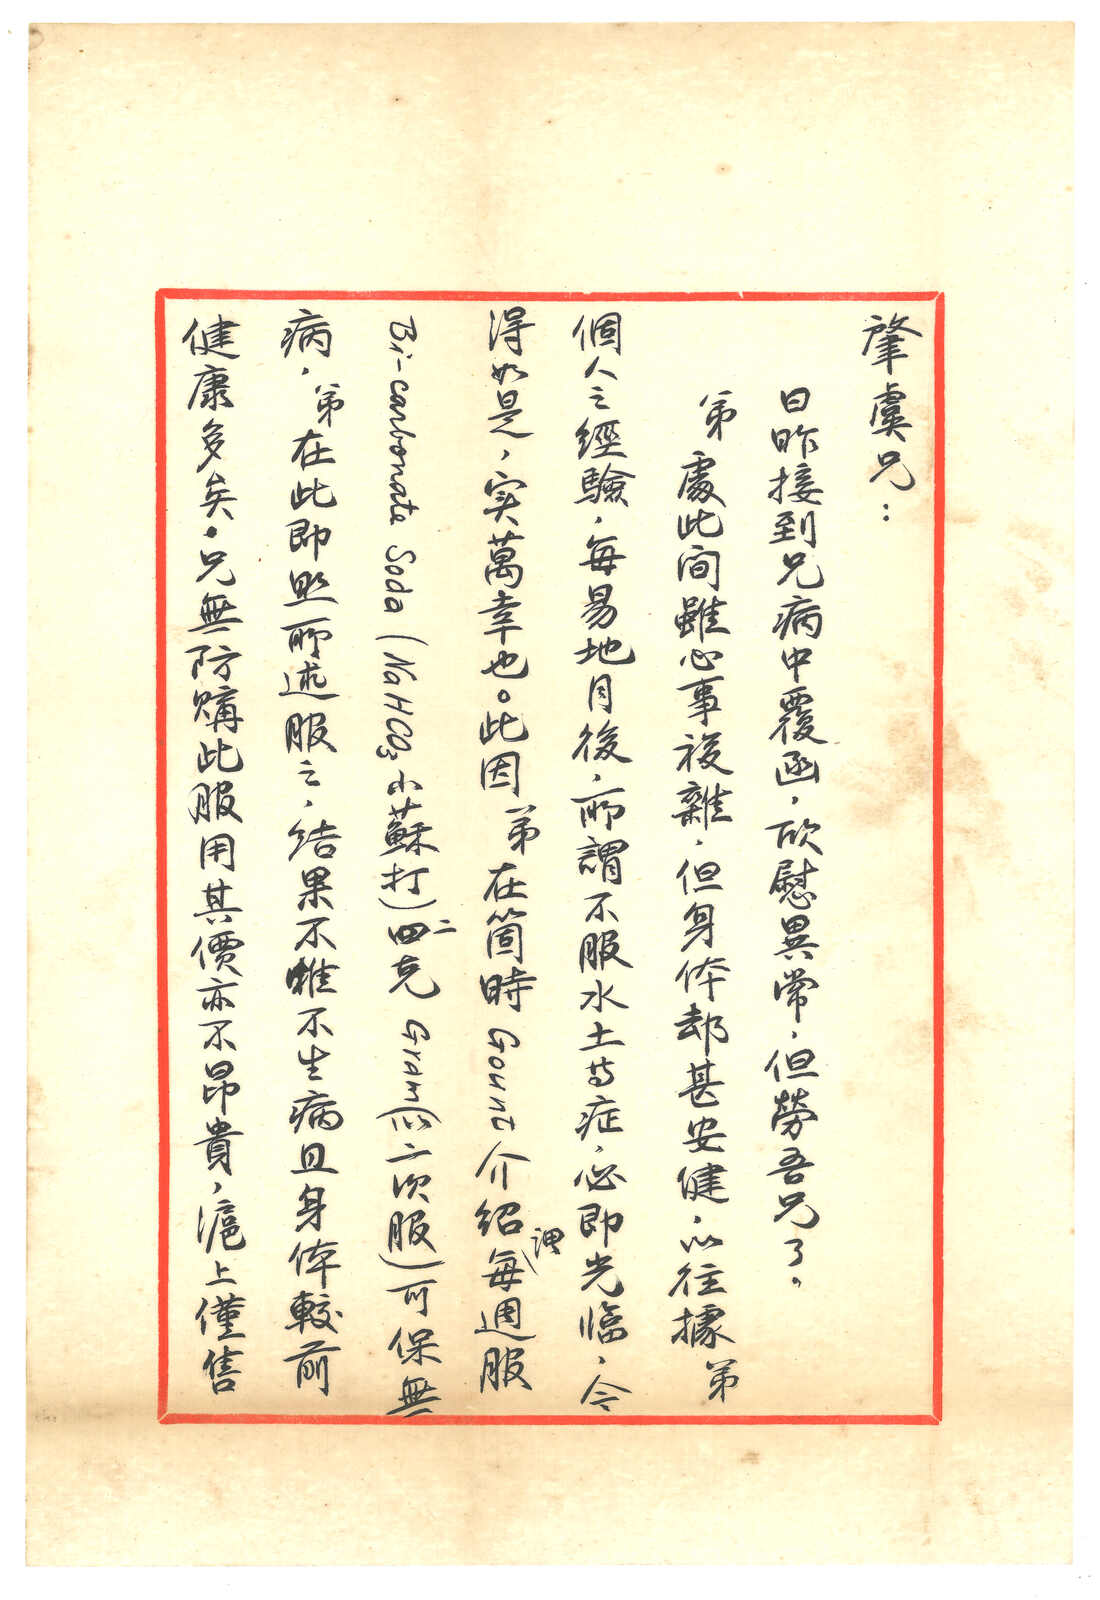 肇虞兄：
日昨接到兄病中覆函，欣慰異常，但勞吾兄了。
弟處此间雖心事複雜，但身体却甚安健，以往據弟
個人之經驗，每易地月後，所謂不服水土等症，必即光臨，今
得如是，实萬幸也。此因弟在箇時Gount介紹謂每週服
Bi-carbonate Soda (NaHCO3小蘇打)四克Gram(以二次服)可保無
病，弟在此即照所述服之，结果不惟不生病且身体較前
健康多矣。兄無防購此服用其價亦不昂貴，滬上僅售